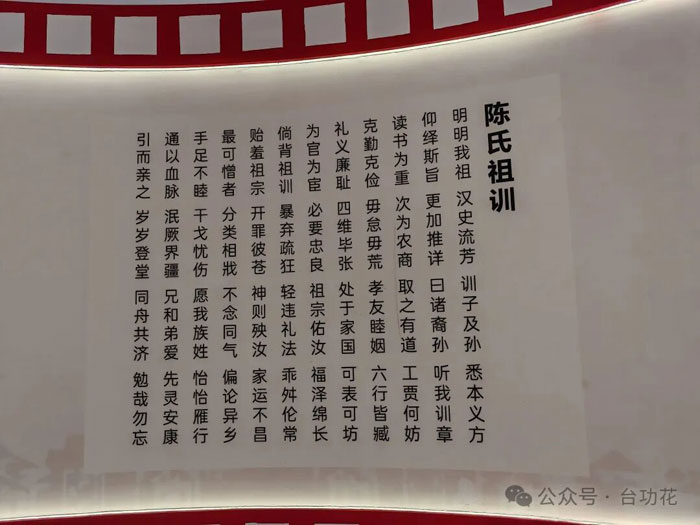 陈氏祖训
明明我祖 汉史流芳 训子及孙 悉本义方
仰绎斯旨 更加推详 曰诸裔孙 听我训章
读书为重 次为农商 取之有道 工贾何妨
克勤克俭 毋怠毋荒 孝友睦姻 六行皆臧
礼义廉耻 四维毕张 处于家国 可表可坊
为官为宦 必要忠良 祖宗佑汝 福泽绵长
倘背祖训 暴弃疏狂 轻违礼法 乖舛伦常
贻羞祖宗 开罪彼苍 神则殃汝 家运不昌
最可憎者 分类相戕 不念同气 偏论异乡
手足不睦 干戈忧伤 愿我族姓 怡怡雁行
通以血脉 泯厥界疆 兄和弟爱 先灵安康
引而亲之 岁岁登堂 同舟共济 勉哉勿忘
公众号·台功花